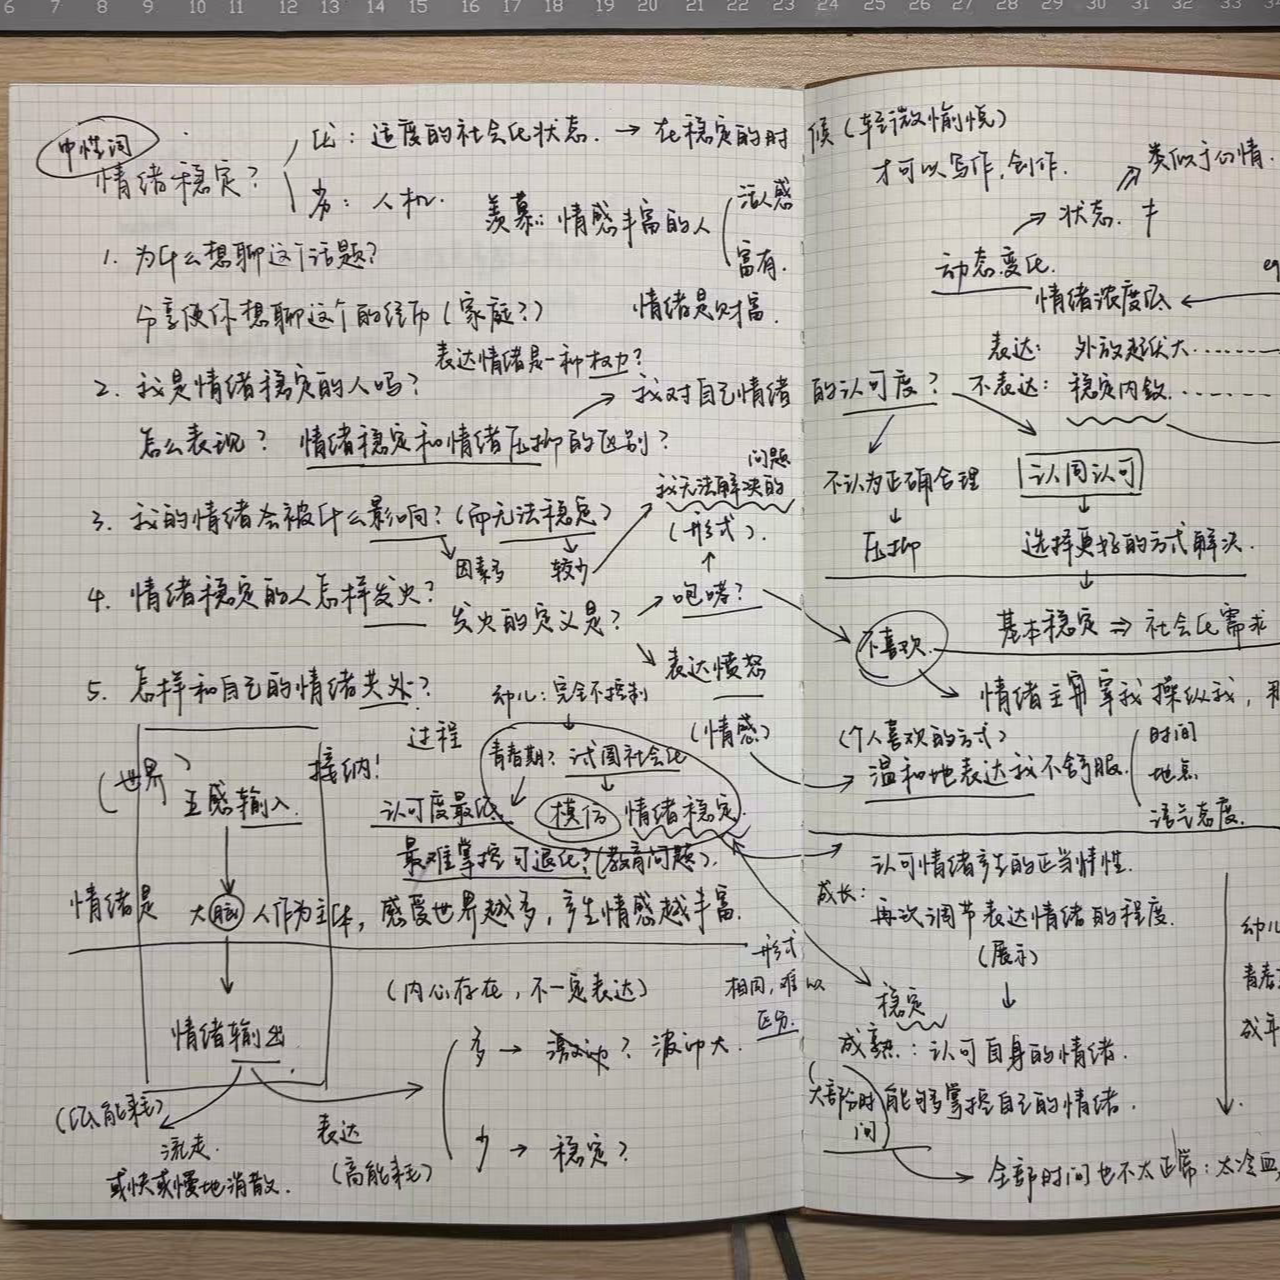 6 7 8 9 10 11 12 13 14 15 16 17 18 19 20 21 22 23 24 25 26 27 28 29 30 31 32 33 34
中性词
情绪稳定?
优:适度的社会化状态. → 在稳定的时候(轻微愉悦)
才可以写作,创作.
劣:人机.
羡慕:情感丰富的人
活人感
富有.
情绪是财富.
1. 为什么想聊这个话题?
分享使你想聊这个的经历(家庭?)
表达情绪是一种权力?
2. 我是情绪稳定的人吗?
怎么表现? 情绪稳定和情绪压抑的区别?
→ 我对自己情绪的认可度?
3. 我的情绪会被什么影响?(而无法稳定)
因素多 较少
问题
我无法解决的
(形式).
4. 情绪稳定的人怎样发火?
发火的定义是? → 咆哮?
表达愤怒
(情感)
5. 怎样和自己的情绪共处?
过程
接纳!
(世界)
五感输入
情绪是 大脑 人作为主体, 感受世界越多,产生情感越丰富.
情绪输出
(低能耗)
流走.
或快或慢地消散.
表达
(高能耗)
幼儿:完全不控制
青春期?试图社会化
模仿 情绪稳定.
认可度最低
最难掌控 可退化?(教育问题).
(内心存在,不一定表达)
形式
相同,难以
区分.
多 → 激动? 波动大.
少 → 稳定?
类似于心情.
状态.
动态变化.
情绪浓度低
eg
表达: 外放起伏大......
不表达: 稳定内敛......
不认为正确合理
压抑
认同认可
选择更好的方式解决.
基本稳定 ⇒ 社会化需求
不喜欢.
情绪主宰我操纵我,
(个人喜欢的方式)
温和地表达我不舒服.
时间
地点
语气态度.
认可情绪产生的正当情性.
成长:
再次调节表达情绪的程度.
(展示)
稳定
成熟:认可自身的情绪.
(大部分时间)能够掌控自己的情绪.
全部时间也不太正常:太冷血
幼儿
青春
成年